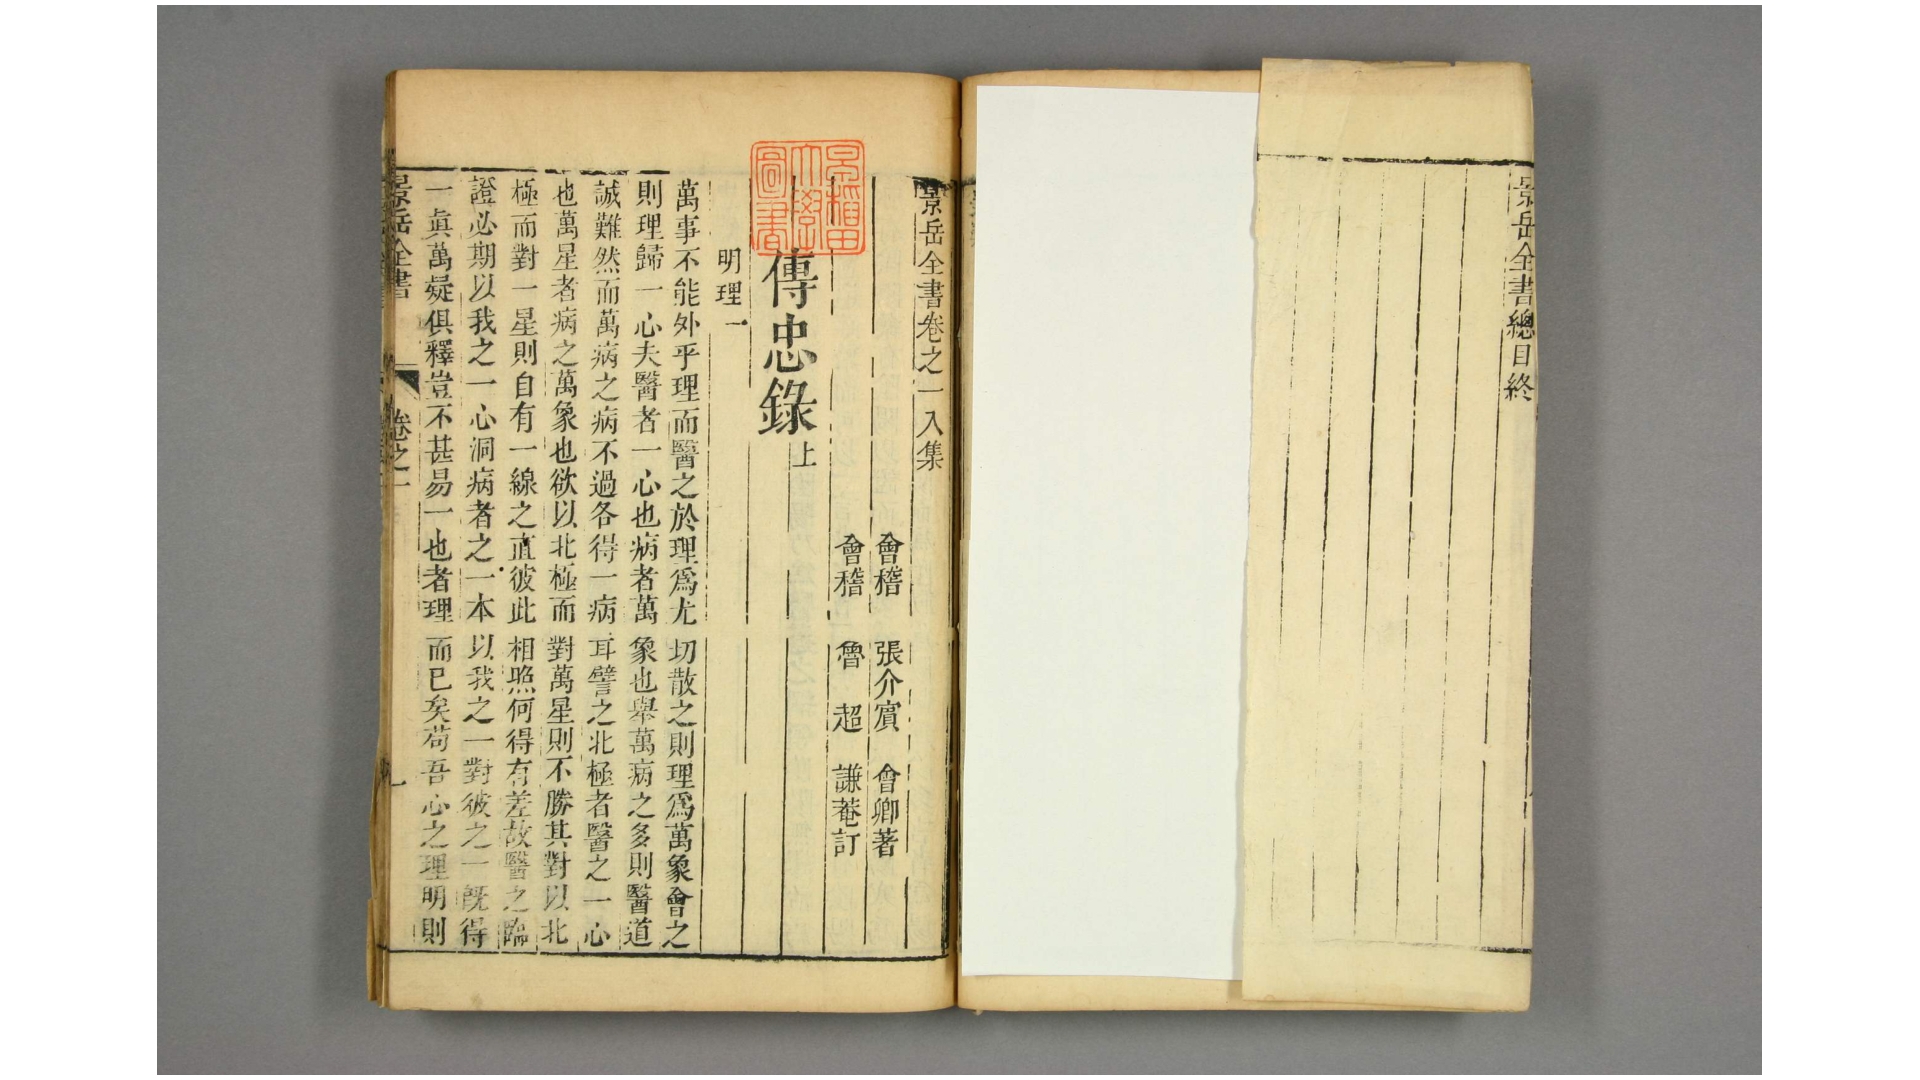 景岳全書總目終
景岳全書卷之一入集
會稽 張介賓 會卿著
會稽 魯 超 謙菴訂
早稲田大學圖書
傳忠錄上
明理一
萬事不能外乎理而醫之於理爲尤切散之則理爲萬象會之
則理歸一心夫醫者一心也病者萬象也舉萬病之多則醫道
誠難然而萬病之病不過各得一病耳譬之北極者醫之一心
也萬星者病之萬象也欲以北極而對萬星則不勝其對以北
極而對一星則自有一線之直彼此相照何得有差故醫之臨
證必期以我之一心洞病者之一本以我之一對彼之一旣得
一眞萬疑俱釋豈不甚易一也者理而已矣苟吾心之理明則
景岳全書 卷之一 一